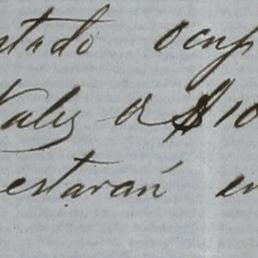 ntado ocup
Vales a $ 10
estarán en